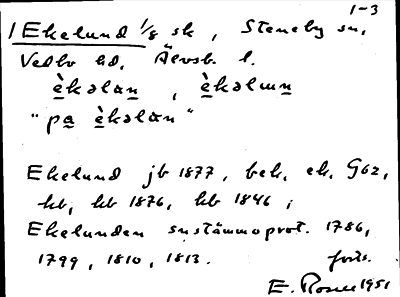 1-3
/Ekelund 1/8 sk, Steneby sn,
Vedbo hd, Älvsb. l.
èkəlun, èkəlun
"pa èkəlun"
Ekelund jb 1877, beb, ek, Göz,
kb, hb 1876, hb 1846,
Ekelunden sustämmoprot. 1786,
1799, 1810, 1813. forts.
E. Rosell 1951